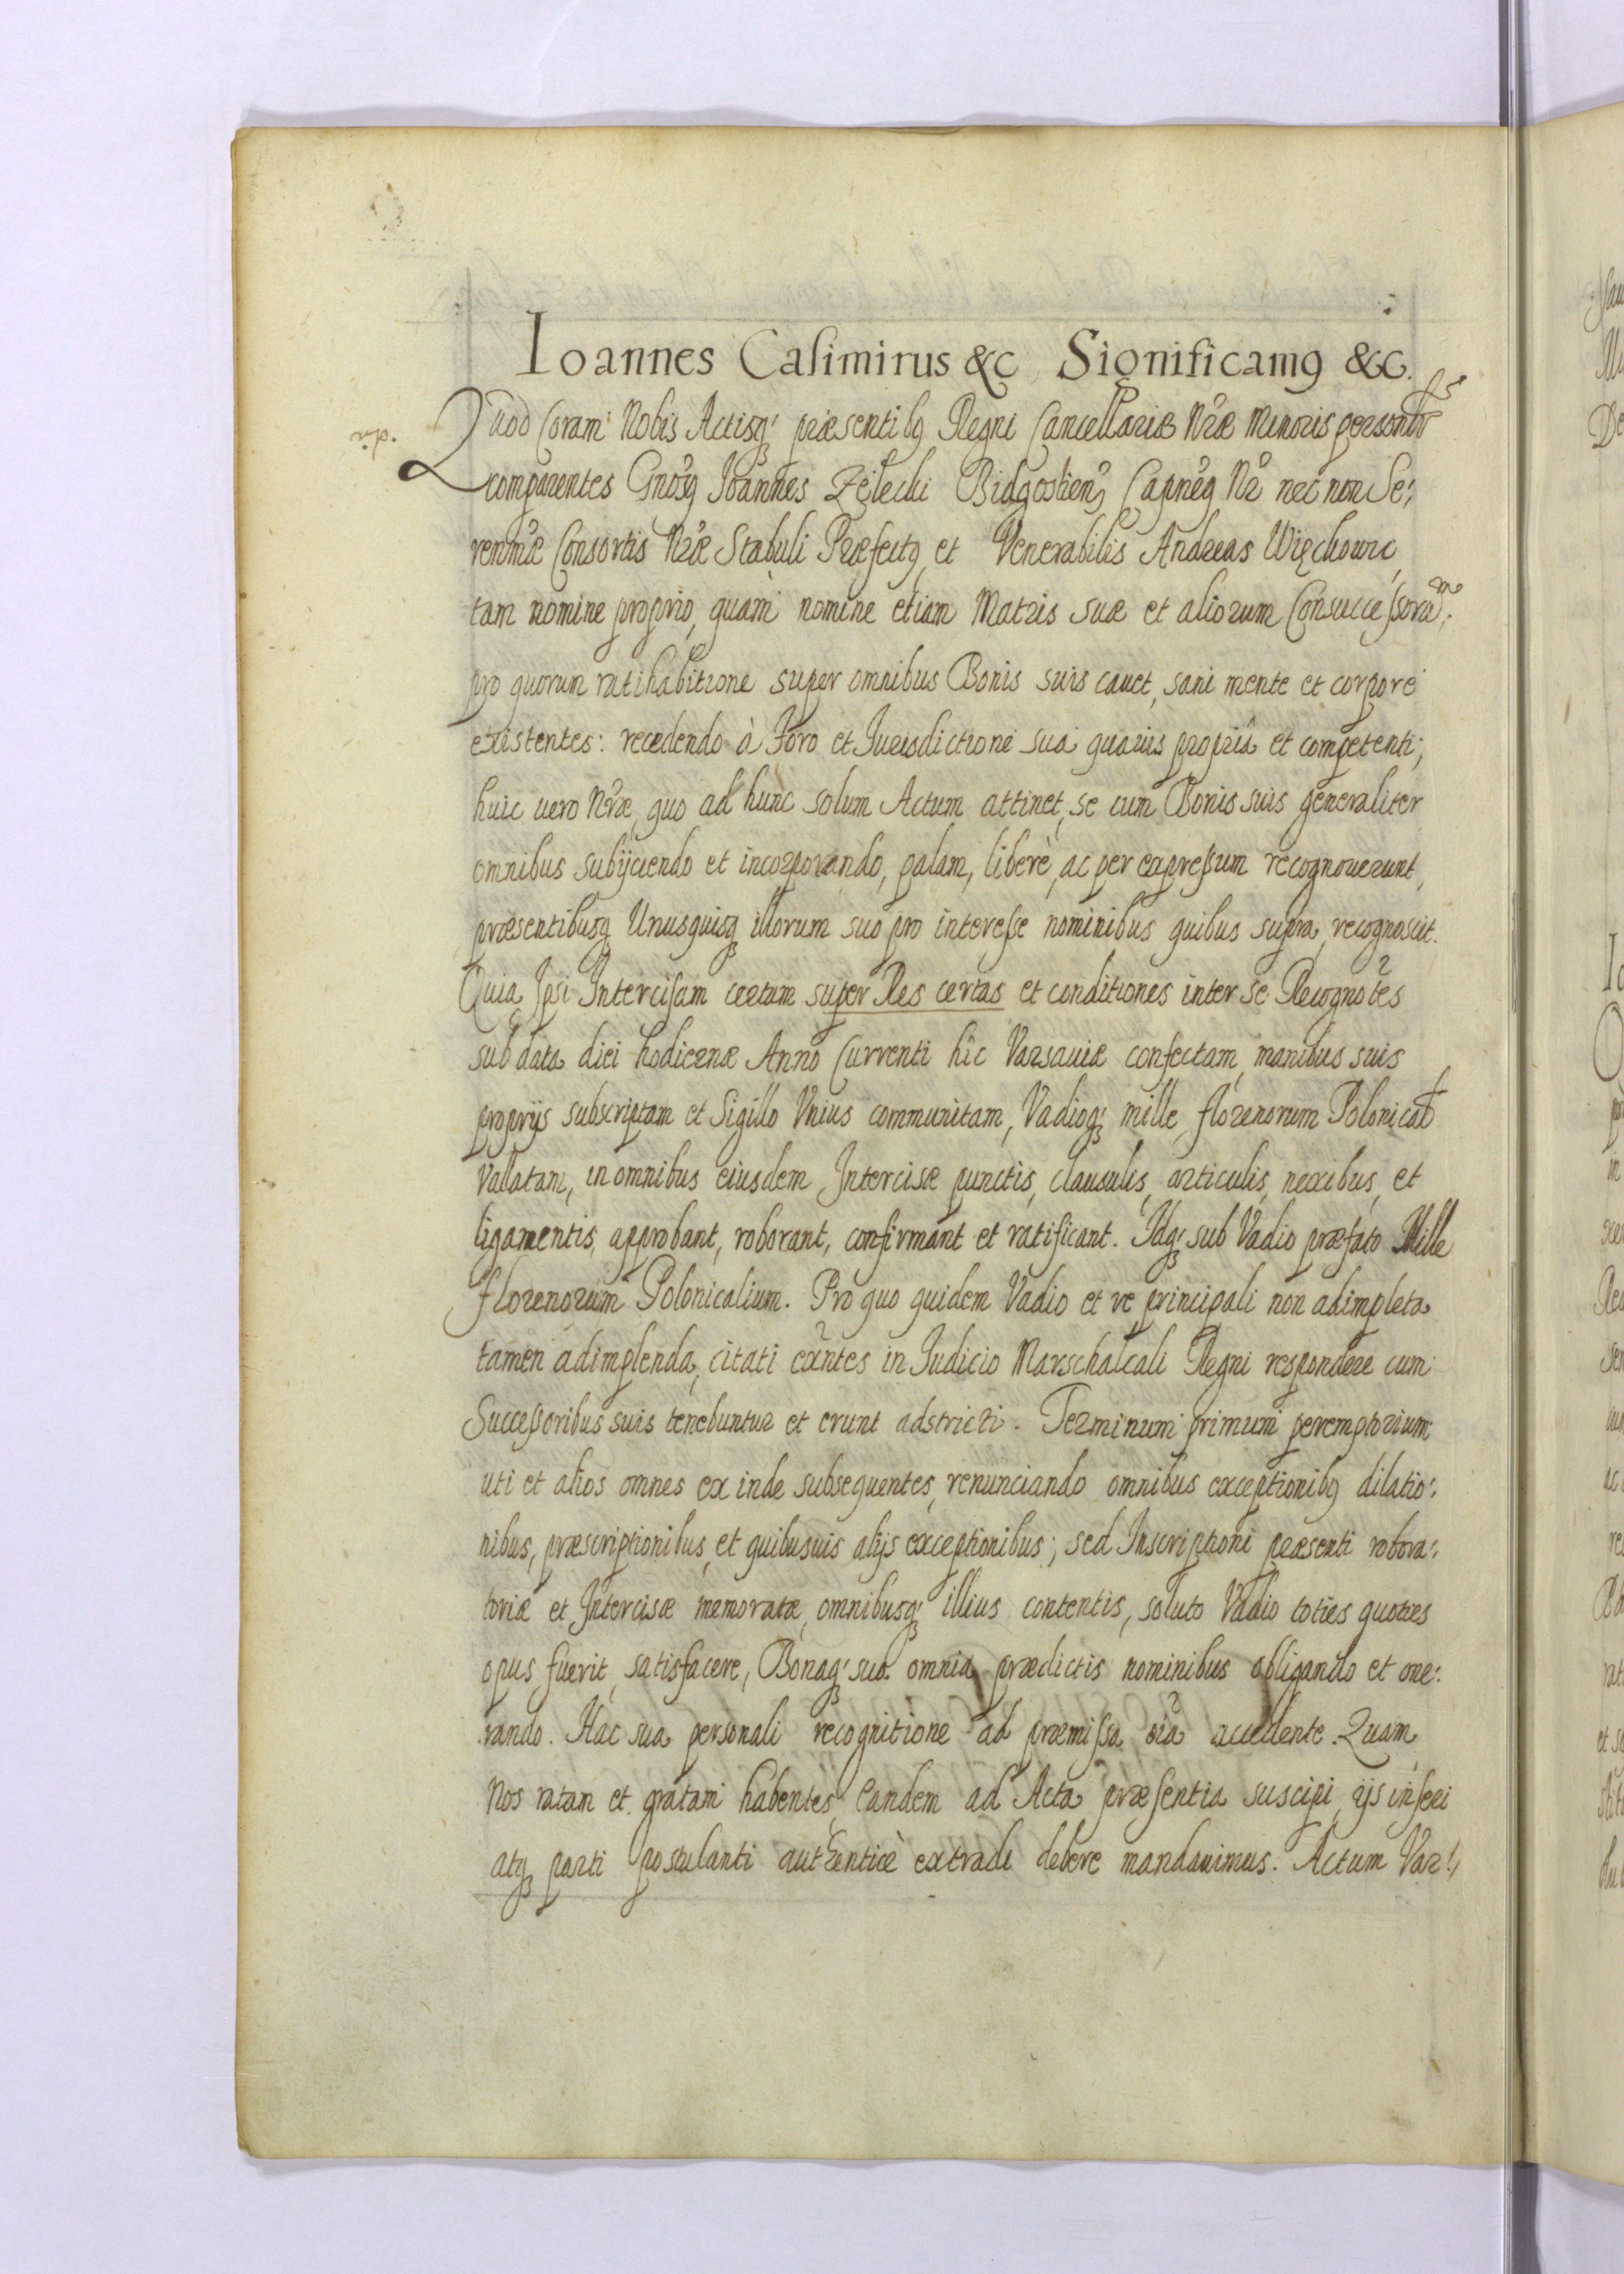 Ioannes Casimirus &c Significam9 &c.
Quod Coram Nobis Actisq; præsentibq Regni Cancellariæ Nræ Minoris personlr
comparentes Gnosq Ioannes Zelecki Bidgostien Capneq Nr nec non Se:
renmæ Consortis Nræ Stabuli Præfectq et Venerabilis Andreas Więchowic
tam nomine proprio, quam nomine etiam Matris suæ et aliorum Consuccessorũ:
pro quorum ratihabitione super omnibus Bonis suis cauet, sani mente et corpore
existentes: recedendo à Foro et Jurisdictione sua quauis propriâ et competenti;
huic uero Nræ, quo ad hunc solum Actum attinet, se cum Bonis suis generaliter
omnibus subijciendo et incorporando, palam, liberè, ac per expressum recognouerunt,
præsentibusq Unusquisq illorum suo pro interesse nominibus quibus supra, recognoscit.
Quia Ipsi Intercisam certam super Res certas et conditiones inter se Recognotes
sub data diei hodiernæ Anno Currenti hîc Varsauiæ confectam, manibus suis
proprijs subscriptam et Sigillo Vnius communitam, Vadioq; mille florenorum Polonical
Vallatam, in omnibus eiusdem Intercisæ punctis, clausulis, articulis, nexibus, et
ligamentis, approbant, roborant, confirmant et ratificant. Idq; sub Vadio præfato Mille
florenorum Polonicalium. Pro quo quidem Vadio et re principali non adimpleta
tamen adimplenda, citati exntes in Judicio Marschalcali Regni respondere cum
Successoribus suis tenebuntur et erunt adstricti. Terminum primum peremptorium
uti et alios omnes ex inde subsequentes, renunciando omnibus exceptionibq dilatio:
nibus, præscriptionibus, et quibusuis alijs exceptionibus; sed Inscriptioni præsenti robora:
toriæ et Intercisæ memoratæ, omnibusq; illius contentis, soluto Vadio toties quoties
opus fuerit, satisfacere, Bonaq; sua omnia prædictis nominibus obligando et one:
rando. Hac sua personali recognitione ad præmissa oĩa accedente. Quam
Nos ratam et gratam habentes, eandem ad Acta præsentia suscipi, ijs inseri
atq parti postulanti authenticè extradi debere mandauimus. Actum Var: